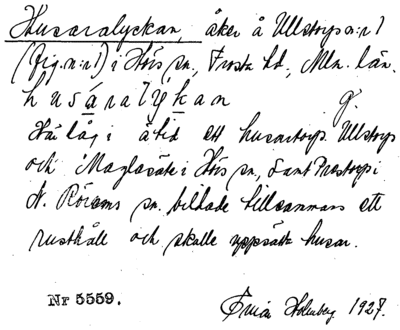 Husaralyckan, åker å Ullstorp n:r 1
(fig. n:r 1) i Hörs sn., Frosta hd., Mlm. län.
húsáralýkan g.
Här låg i åtid ett husartorp. Ullstorp
och Maglasäte i Hörs sn., samt Prestorp i
N. Rörums sn. bildade tillsammans ett
rusthåll och skulle uppsätta husar.
Nr 5559. Holmberg 1927.